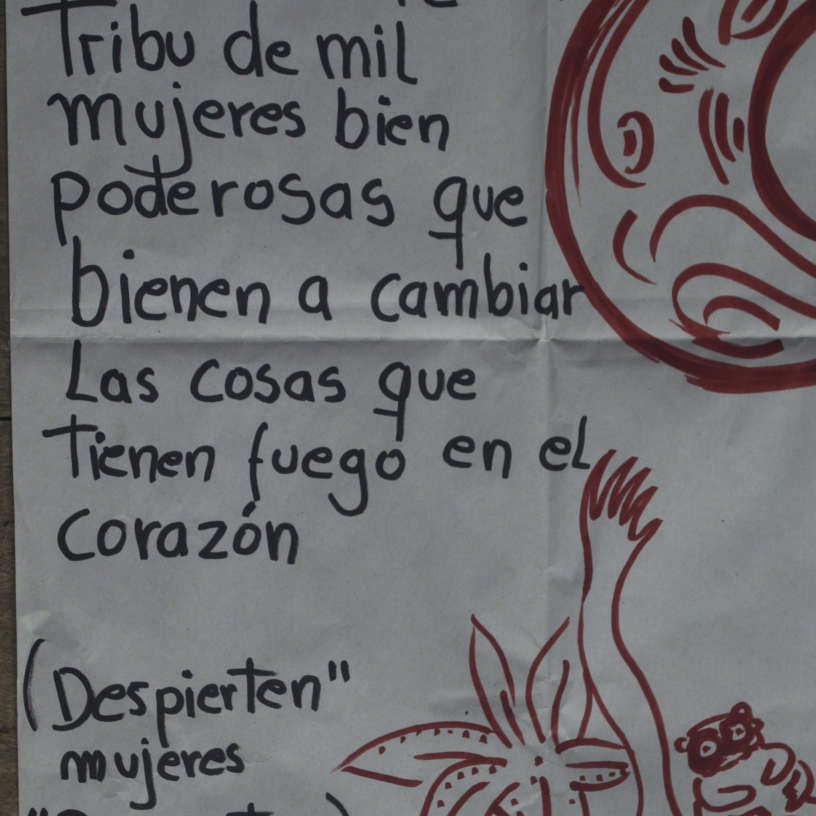 Tribu de mil
mujeres bien
poderosas que
bienen a cambiar
Las cosas que
Tienen fuego en el
corazón
(Despierten"
mujeres